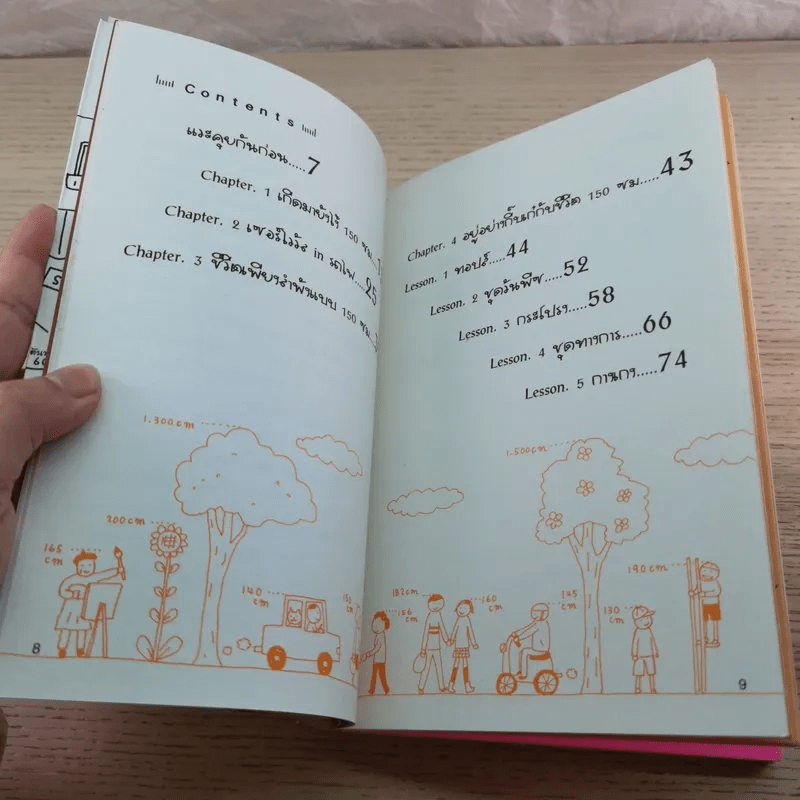 Contents
แวะคุยกันก่อน.....7
Chapter. 1 เกิดมายังไง๊ 150 ซม...1
Chapter. 2 เซอร์ไววัล in รถไฟ....25
Chapter. 3 ชีวิตเพียงลำพังแบบ 150 ซม...
1.300cm
200cm
165 cm
140 cm
8
Chapter. 4 อยู่อย่างกิ๊บเก๋กับชีวิต 150 ซม.....43
Lesson. 1 ทอปส์.....44
Lesson. 2 ชุดวันพีซ.....52
Lesson. 3 กระโปรง.....58
Lesson. 4 ชุดทางการ.....66
Lesson. 5 กางเกง.....74
1.500cm
182cm
156 cm
160 cm
145 cm
130 cm
190cm
9